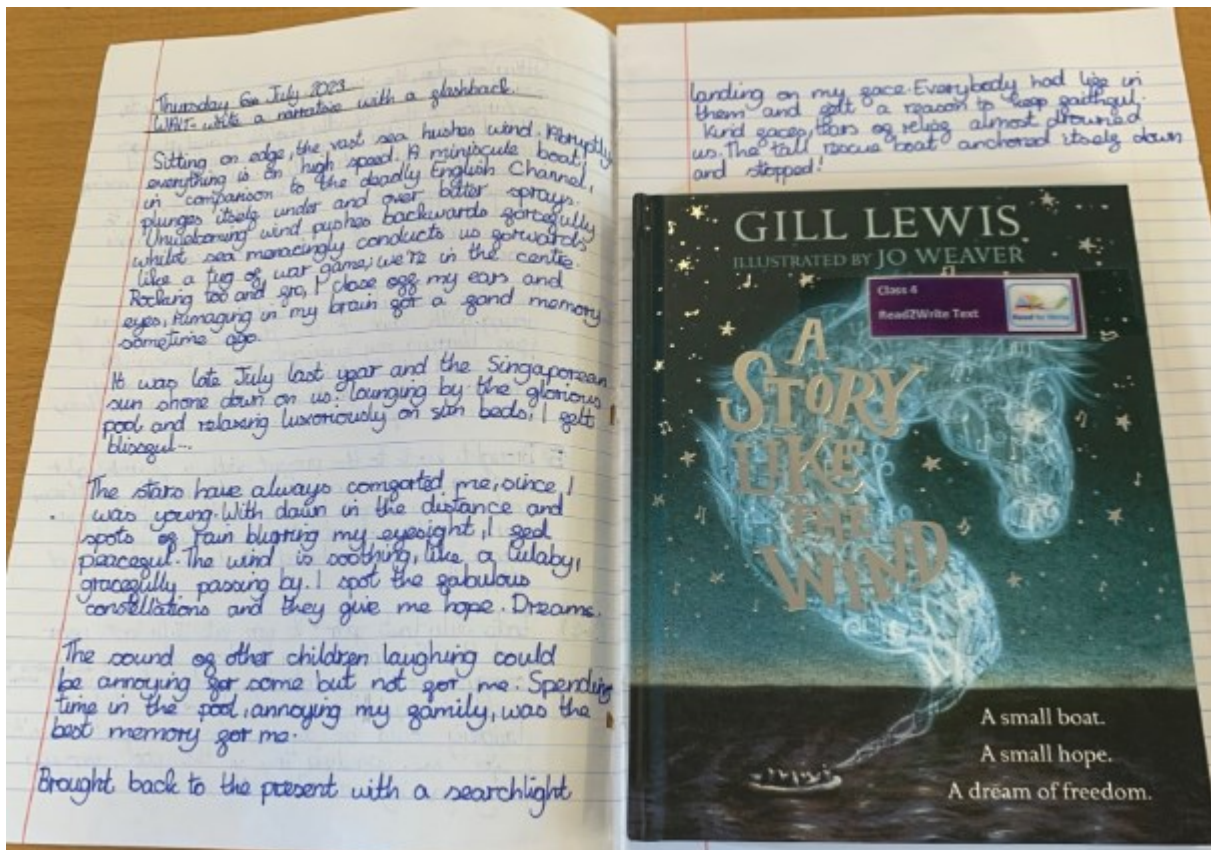 Thursday 6th July 2023
WALT- write a narrative with a flashback.
Sitting on edge, the vast sea hushes wind. Abruptly
everything is on high speed. A miniscule boat,
in comparison to the deadly English Channel,
plunges itself under and over bitter sprays.
Unwelcoming wind pushes backwards forcefully
whilst sea menacingly conducts us forwards
like a tug of war game; we're in the centre.
Rocking too and fro, I close off my ears and
eyes, rumaging in my brain for a fond memory
sometime ago.
It was late July last year and the Singaporean
sun shone down on us: lounging by the glorious
pool and relaxing luxoriously on sun beds; I felt
blissful...
The stars have always comforted me, since I
was young. With dawn in the distance and
spots of rain blurring my eyesight, I feel
peaceful. The wind is soothing, like a lulaby,
gracefully passing by. I spot the fabulous
constellations and they give me hope. Dreams.
The sound of other children laughing could
be annoying for some but not for me. Spending
time in the pool, annoying my family, was the
best memory for me.
Brought back to the present with a searchlight
landing on my face. Everybody had life in
them and felt a reason to keep faithful.
Kind faces, tears of relief almost drowned
us. The tall rescue boat anchored itself down
and stopped!
GILL LEWIS
ILLUSTRATED BY JO WEAVER
Class 4
Read2Write Text
A
STORY
LIKE
THE
WIND
A small boat.
A small hope.
A dream of freedom.